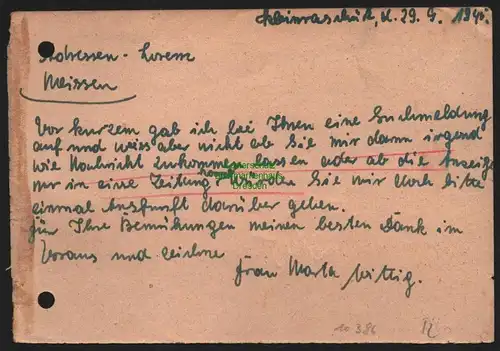 Kleinraschütz, d. 29. 9. 1945.
Adressen - Lorenz
Meissen
Vor kurzem gab ich bei Ihnen eine Suchmeldung
auf und weiss aber nicht ob Sie mir dann irgend
wie Nachricht zukommen lassen oder ob die Anzeige
nur in eine Zeitung kommt, Sie mir doch bitte
einmal Auskunft darüber geben.
Für Ihre Bemühungen meinen besten Dank im
Voraus und zeichne
Frau Marta Wittig.
10 386